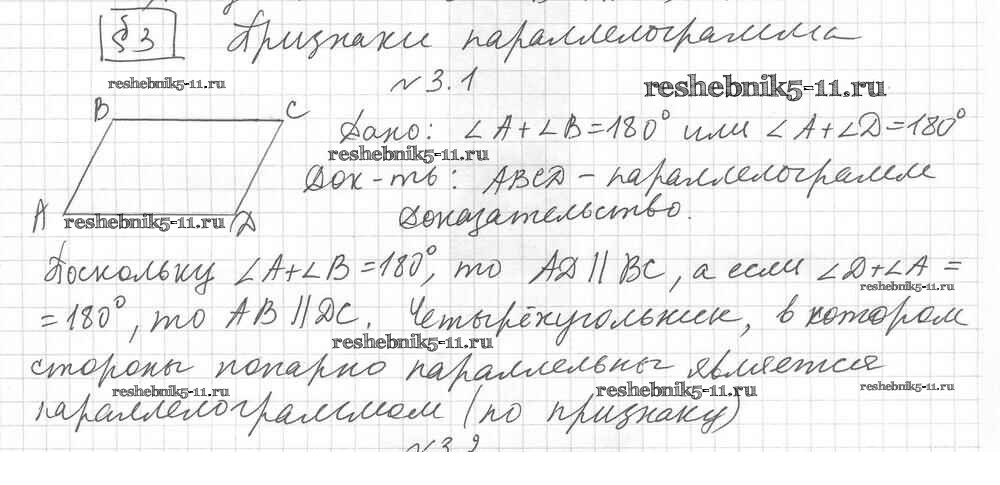 §3 Признаки параллелограмма
reshebnik5-11.ru
№3.1
reshebnik5-11.ru
B C
Дано: ∠A+∠B=180° или ∠A+∠D=180°
reshebnik5-11.ru
Док-ть: ABCD – параллелограмм
A D
reshebnik5-11.ru
Доказательство.
Поскольку ∠A+∠B=180°, то AD || BC, а если ∠D+∠A =
reshebnik5-11.ru
=180°, то AB || DC. Четырёхугольник, в котором
reshebnik5-11.ru
стороны попарно параллельны является
reshebnik5-11.ru reshebnik5-11.ru reshebnik5-11.ru
параллелограммом (по признаку)